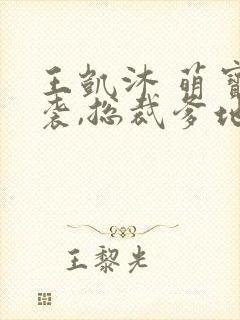 王凯沐 萌寶
袭,总裁爹地
王黎光